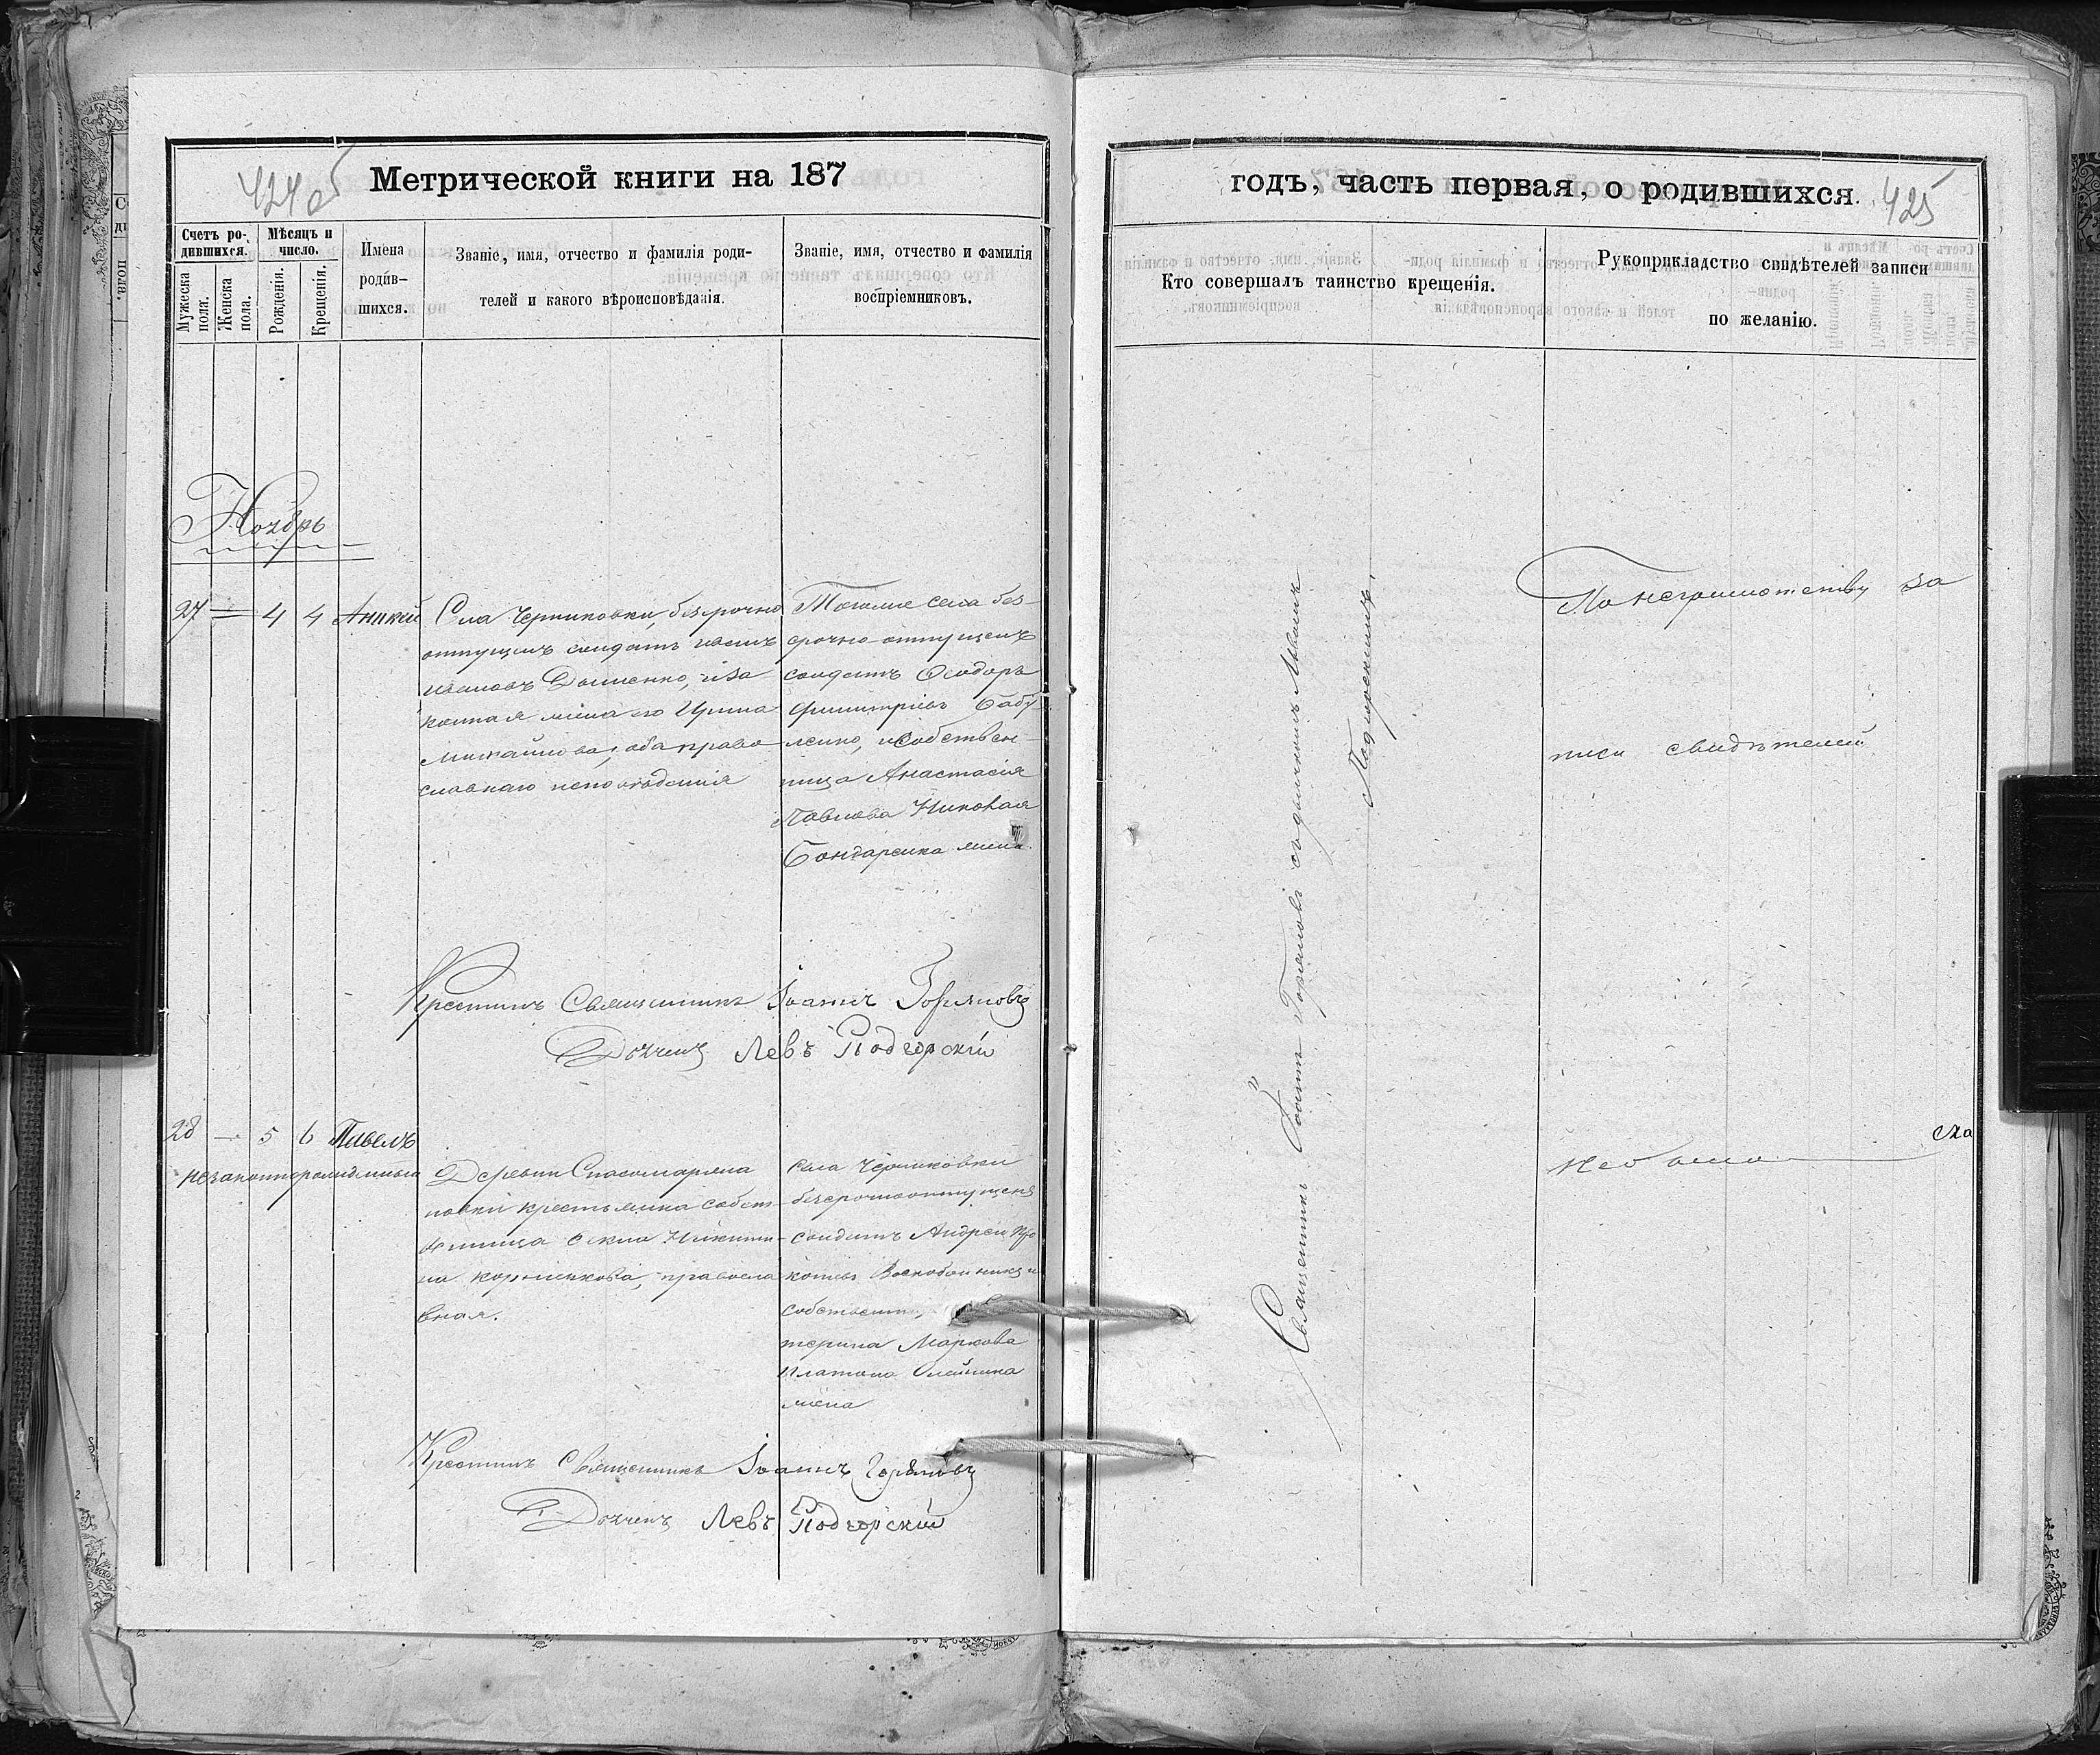 424 об
Метрической книги на 187
Счетъ ро-
дившихся.
Мѣсяцъ и
число.
Мужеска
пола.
Женска
пола.
Рожденія.
Крещенія.
Имена
родив-
шихся.
Званіе, имя, отчество и фамилія роди-
телей и какого вѣроисповѣданія.
Званіе, имя, отчество и фамилія
воспріемниковъ.
Ноябрь
27 — 4 4 Аникей
Села Черниковки, безсрочно
отпущенъ солдатъ
Ивановъ Доценко, и за
конная жена его Ирина
Михайлова, оба право
славнаго исповѣданія
Тогоже села без-
срочно отпущенъ
солдатъ Ѳеодоръ
Димитріевъ Бабу
ленко, и собствен-
ница Анастасія
Павлова Николая
Бондаренка жена.
Крестилъ Священникъ Іоаннъ Горяновъ
Дьячекъ Левъ Подгорскій
28 — 5 6 Павелъ
незаконнорожденный
Деревни Спасомарья
новки крестьянка собст
венница Никити
на правосла
вная.
села Черниковки
безсрочноотпущенъ
солдатъ Андрей Про
копіевъ Воскобойникъ и
собственни
терина Маркова
Платона Олейника
жена
Крестилъ Священникъ Іоаннъ Горяновъ
Дьячекъ Левъ Подгорскій
годъ, часть первая, о родившихся.
425
Кто совершалъ таинство крещенія.
Рукоприкладство свидѣтелей записи
по желанію.
Священникъ Іоаннъ Горяновъ съ дьячкомъ Львомъ
Подгорскимъ.
По неграмотству за
писи свидѣтелей
не было